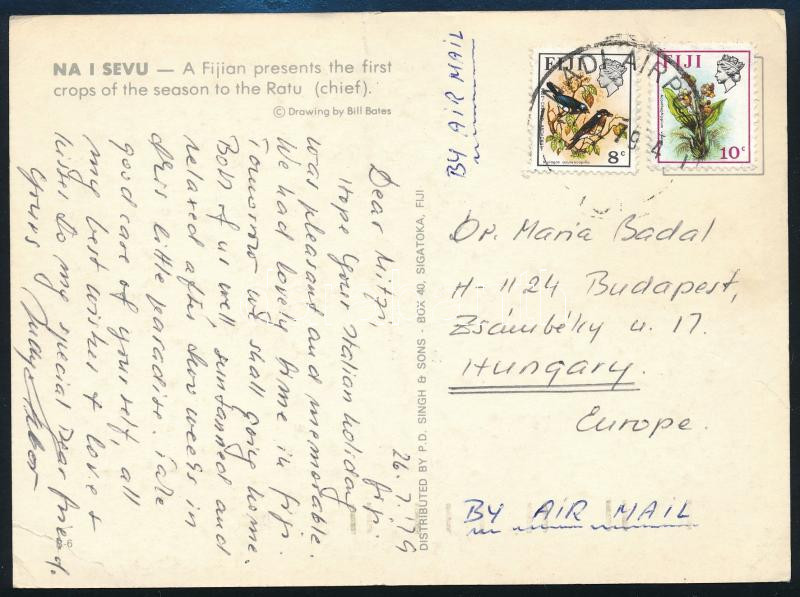 NA I SEVU — A Fijian presents the first
crops of the season to the Ratu (chief).
© Drawing by Bill Bates
Fiji.
26.7.79
Dear Mitzi,
Hope your Italian holiday
was pleasant and memorable.
We had lovely time in Fiji.
Tomorrow we shall going home.
Both of us well, suntanned and
relaxed after two weeks in
this little paradise. Take
good care of yourself, all
my best wishes & love &
kisses to my special dear friend.
Yours Judy & Tibor
-6
DISTRIBUTED BY P.D. SINGH & SONS - BOX 40, SIGATOKA, FIJI
BY AIR MAIL
FIJI
8c
FIJI
10c
NADI AIRP
Dr. Maria Badal
H-1124 Budapest,
Zsámbéky u. 17.
Hungary.
Europe.
BY AIR MAIL